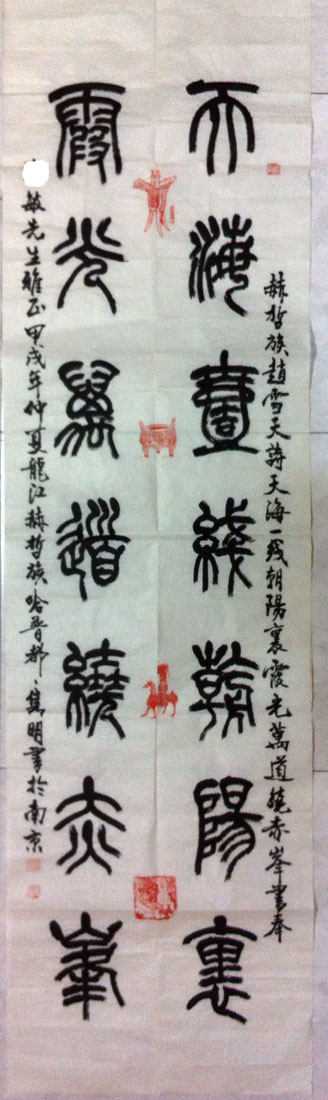 赫哲族趙雪天詩天海一线朝陽裏霞光萬道繞赤峯書奉
天海壹綫朝陽裏
霞光萬道繞赤峯
敏先生雅正甲戌年仲夏龍江赫哲族哈普都、雋明書於南京